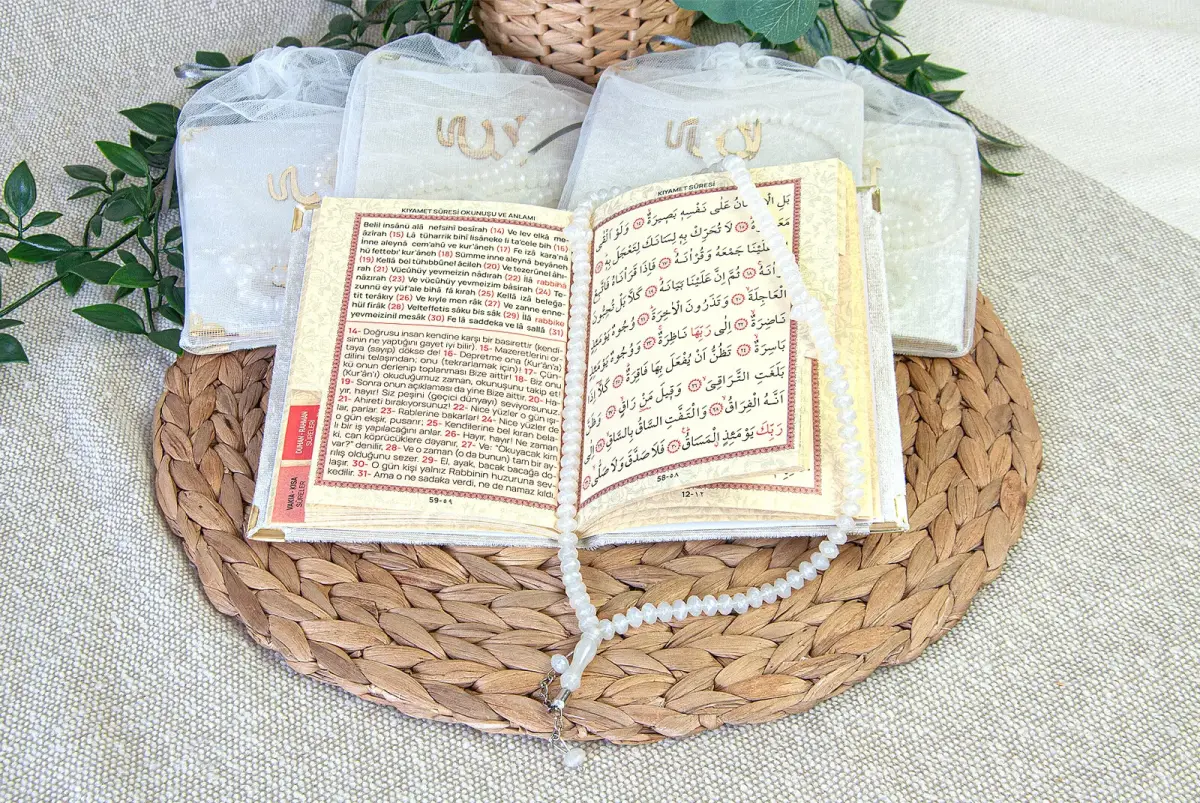 KIYAMET SÛRESİ OKUNUŞU VE ANLAMI
Belil insânü alâ nefsihî besîrah (14) Ve lev elka me-
âzîrah (15) Lâ tüharrik bihî lisâneke li ta'cele bih (16)
İnne aleynâ cem'ahû ve kur'âneh (17) Fe izâ kara'nâ
hü fettebı' kur'âneh (18) Sümme inne aleynâ beyâneh
(19) Kellâ bel tühıbbûnel âcileh (20) Ve tezerûnel âhı-
rah (21) Vücûhüy yevmeizin nâdırah (22) İlâ rabbihâ
nâzırah (23) Ve vücûhüy yevmeizim bâsirah (24) Te-
zunnü ey yüf'ale bihâ fâ kırah (25) Kellâ izâ beleğa-
tit terâkıy (26) Ve kıyle men râk (27) Ve zanne enne-
hül firâk (28) Velteffetis sâku bis sâk (29) İlâ rabbike
yevmeizinil mesâk (30) Fe lâ saddeka ve lâ sallâ (31)
14- Doğrusu insan kendine karşı bir basirettir (kendi-
sinin ne yaptığını gayet iyi bilir). 15- Mazeretlerini or-
taya (sayıp) dökse de! 16- Depretme ona (Kur'ân'a)
dilini telaşından; onu (tekrarlamak için)! 17- Çün-
kü onun derlenip toplanması Bize aittir! 18- Biz onu
(Kur'ân'ı) okuduğumuz zaman, okunuşunu takip et!
19- Sonra onun açıklaması da yine Bize aittir. 20- Ha-
yır, hayır! Siz peşini (geçici dünyayı) seviyorsunuz.
21- Ahireti bırakıyorsunuz! 22- Nice yüzler o gün ışı-
lar, parlar. 23- Rablerine bakarlar! 24- Nice yüzler de
o gün ekşir, pusarır; 25- Kendilerine bel kıran bela-
lı bir iş yapılacağını anlar. 26- Hayır, hayır! Ne zaman
ki, can köprücüklere dayanır, 27- Ve: "Okuyacak kim
var?" denilir, 28- Ve o zaman (o da bunun) tam bir ay-
rılış olduğunu sezer. 29- El, ayak, bacak bacağa do-
laşır. 30- O gün kişi yalnız Rabbinin huzuruna sev-
kedilir. 31- Ama o ne sadaka verdi, ne de namaz kıldı.
DUHAN - RAHMAN
SÛRELERİ
VAKIA - KISA
SÛRELER
59-٥٩
KIYAMET SÛRESİ
بَلِ الْاِنْسَانُ عَلٰى نَفْسِهٖ بَصٖيرَةٌ ﴿١٤﴾ وَلَوْ اَلْقٰى
﴿١٥﴾ لَا تُحَرِّكْ بِهٖ لِسَانَكَ لِتَعْجَلَ بِهٖ ﴿١٦﴾
عَلَيْنَا جَمْعَهُ وَقُرْاٰنَهُ ﴿١٧﴾ فَاِذَا قَرَاْنَاهُ فَاتَّبِعْ
﴿١٨﴾ ثُمَّ اِنَّ عَلَيْنَا بَيَانَهُ ﴿١٩﴾ كَلَّا بَلْ تُحِبُّونَ
الْعَاجِلَةَ ﴿٢٠﴾ وَتَذَرُونَ الْاٰخِرَةَ ﴿٢١﴾ وُجُوهٌ يَوْمَئِذٍ
نَاضِرَةٌ ﴿٢٢﴾ اِلٰى رَبِّهَا نَاظِرَةٌ ﴿٢٣﴾ وَوُجُوهٌ يَوْمَئِذٍ
بَاسِرَةٌ ﴿٢٤﴾ تَظُنُّ اَنْ يُفْعَلَ بِهَا فَاقِرَةٌ ﴿٢٥﴾ كَلَّا اِذَا
بَلَغَتِ التَّرَاقِىَ ﴿٢٦﴾ وَقٖيلَ مَنْ رَاقٍ ﴿٢٧﴾ وَظَنَّ
اَنَّهُ الْفِرَاقُ ﴿٢٨﴾ وَالْتَفَّتِ السَّاقُ بِالسَّاقِ ﴿٢٩﴾ اِلٰى
رَبِّكَ يَوْمَئِذٍ الْمَسَاقُ ﴿٣٠﴾ فَلَا صَدَّقَ وَلَا صَلّٰى ﴿٣١﴾
58-٥٨
12-١٢